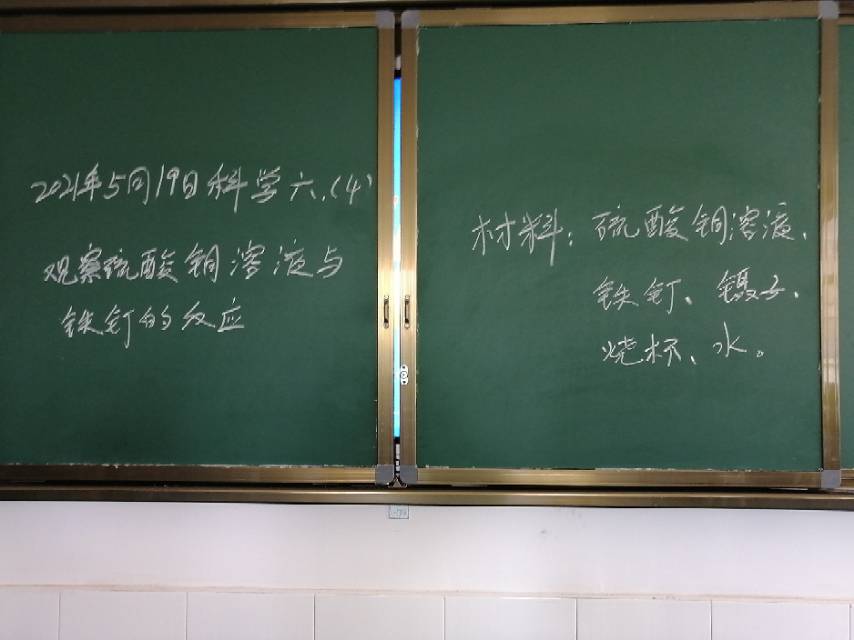 2021年5月19日科学六.(4)
观察硫酸铜溶液与
铁钉的反应
材料：硫酸铜溶液、
铁钉、镊子、
烧杯、水。